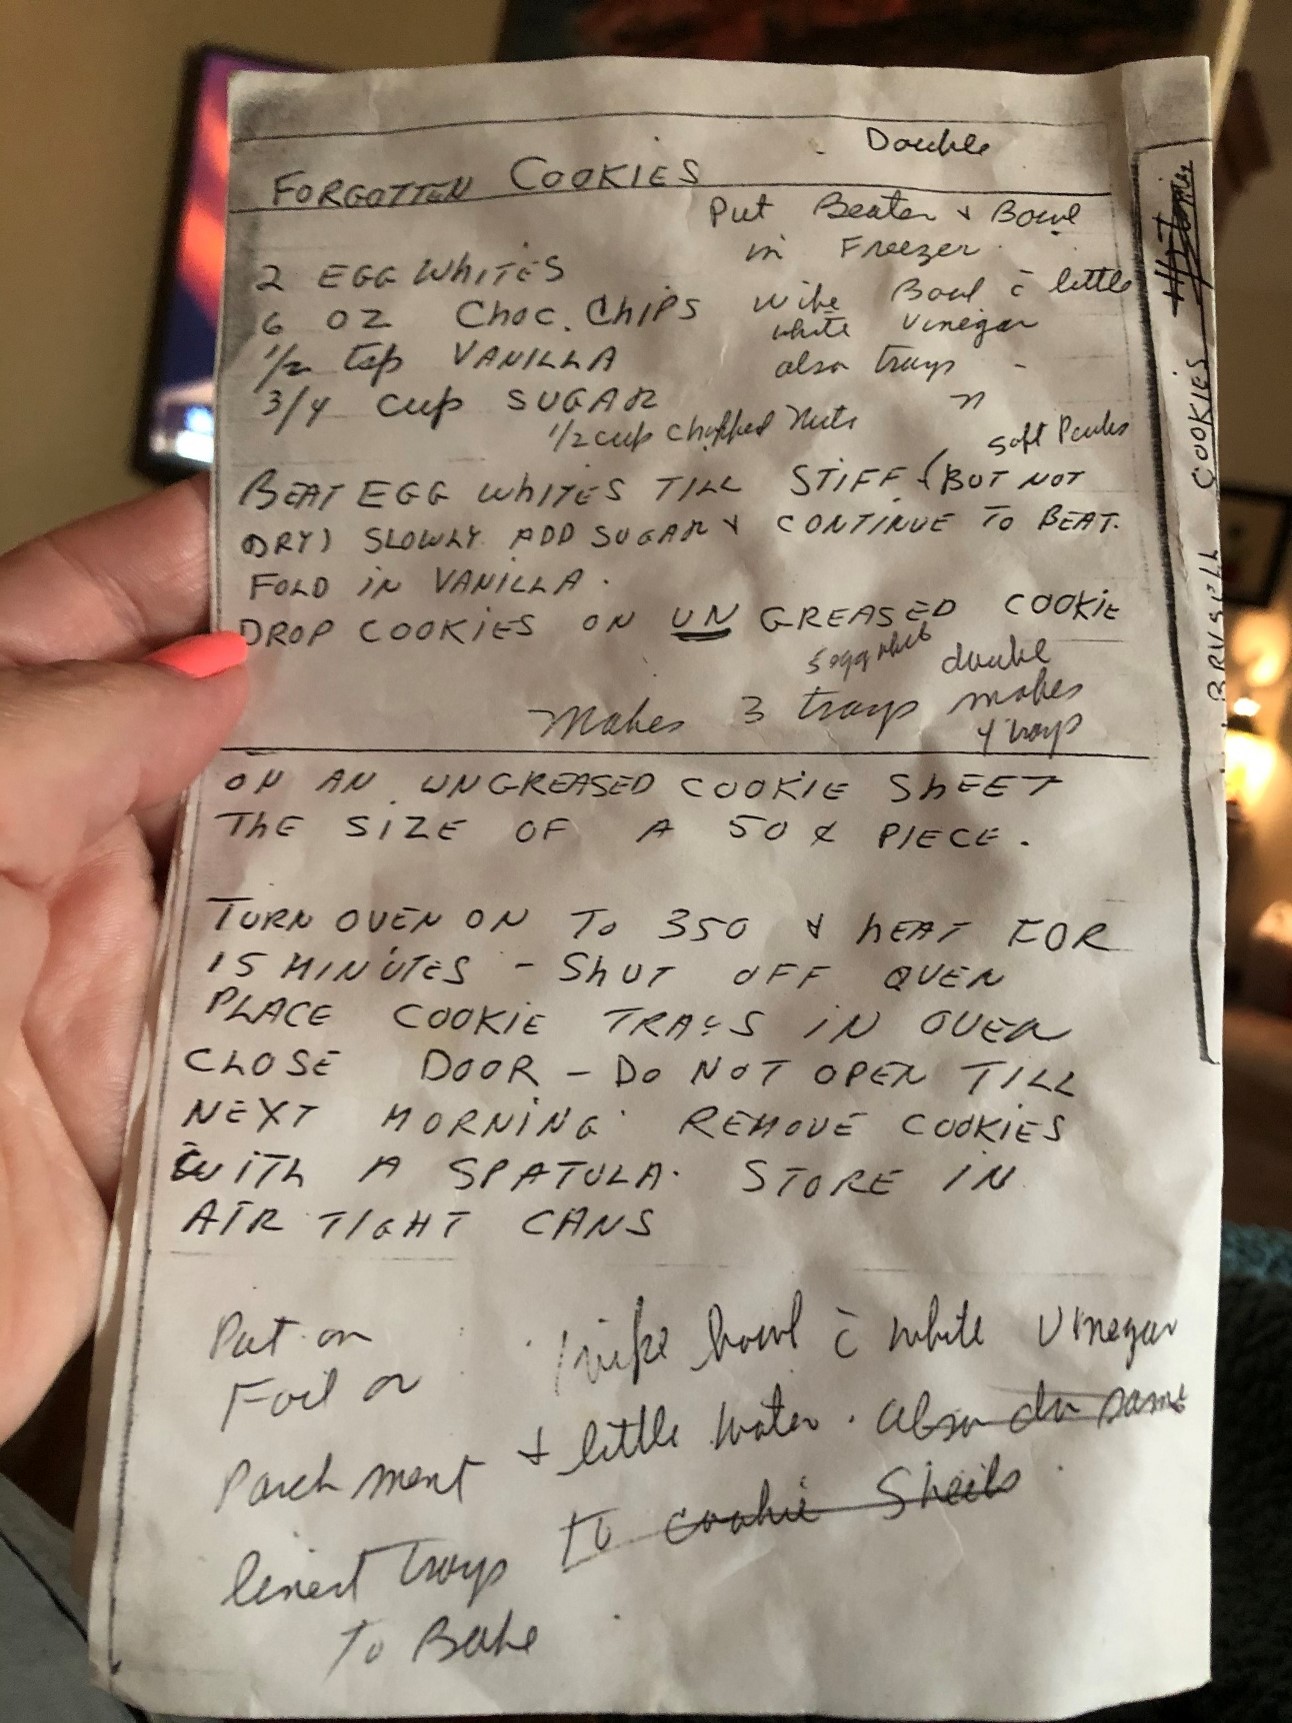 Double
FORGOTTEN COOKIES
Put Beater & Bowl
in Freezer.
2 EGG WHITES
6 OZ CHOC. CHIPS
1/2 tsp VANILLA
3/4 cup SUGAR
1/2 cup chopped Nuts
wipe Bowl c̄ little
white Vinegar
also trays -
soft Peaks
BEAT EGG WHITES TILL STIFF (BUT NOT
DRY) SLOWLY ADD SUGAR & CONTINUE TO BEAT.
FOLD IN VANILLA.
DROP COOKIES ON UN GREASED COOKIE
5 egg whites double
Makes 3 trays makes
4 trays
ON AN UNGREASED COOKIE SHEET
THE SIZE OF A 50 ¢ PIECE.
TURN OVEN ON TO 350 & HEAT FOR
15 MINUTES - SHUT OFF OVEN
PLACE COOKIE TRAYS IN OVEN
CLOSE DOOR - DO NOT OPEN TILL
NEXT MORNING. REMOVE COOKIES
WITH A SPATULA. STORE IN
AIR TIGHT CANS
Put on
Foil or
Parchment
lined trays
To Bake
wipe bowl c̄ white Vinegar
& little water. also do same
to cookie Sheets.
BRUSELL COOKIES